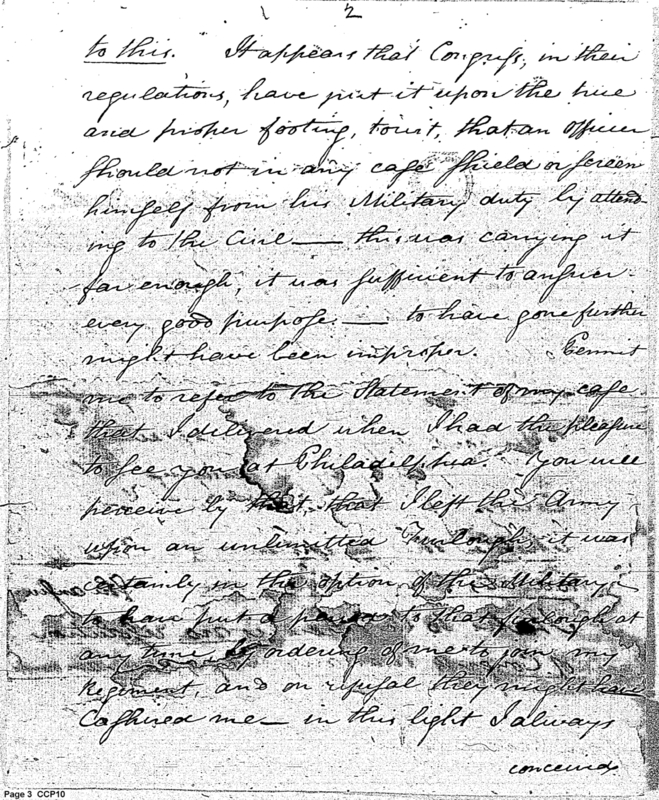 2
to this. It appears that Congress, in their
regulations, have put it upon the true
and proper footing, to wit, that an Officer
should not in any case shield or screen
himself from his Military duty by attend-
ing to the Civil — this was carrying it
far enough, it was sufficient to answer
every good purpose — to have gone further
might have been improper. Permit
me to refer to the Statement of my case
that I delivered when I had the pleasure
to see you at Philadelphia. You will
perceive by that, that I left the Army
upon an unlimitted Furlough, it was
certainly in the option of the Military
to have put a period to that furlough at
any time by ordering of me to join my
Regiment, and on refusal they might have
Cashired me — in this light I always
conceived
Page 3 CCP10